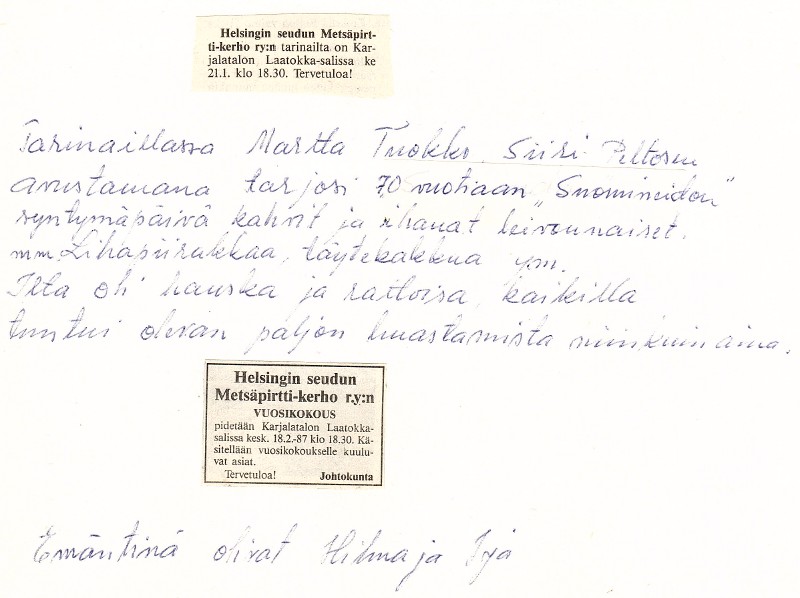 Helsingin seudun Metsäpirt-
ti-kerho ry:n tarinailta on Kar-
jalatalon Laatokka-salissa ke
21.1. klo 18.30. Tervetuloa!
Tarinaillassa Martta Tuokko, Siiri Peltosen
avustamana tarjosi 70 vuotiaan „Suomineidon"
syntymäpäivä kahvit ja ihanat leivonnaiset.
mm. Lihapiirakkaa, täytekakkua ym.
Ilta oli hauska ja rattoisa, kaikilla
tuntui olevan paljon huastamista niinkuin aina.
Helsingin seudun
Metsäpirtti-kerho r.y:n
VUOSIKOKOUS
pidetään Karjalatalon Laatokka-
salissa kesk. 18.2.-87 klo 18.30. Kä-
sitellään vuosikokoukselle kuulu-
vat asiat.
Tervetuloa! Johtokunta
Emäntinä olivat Hilma ja Irja